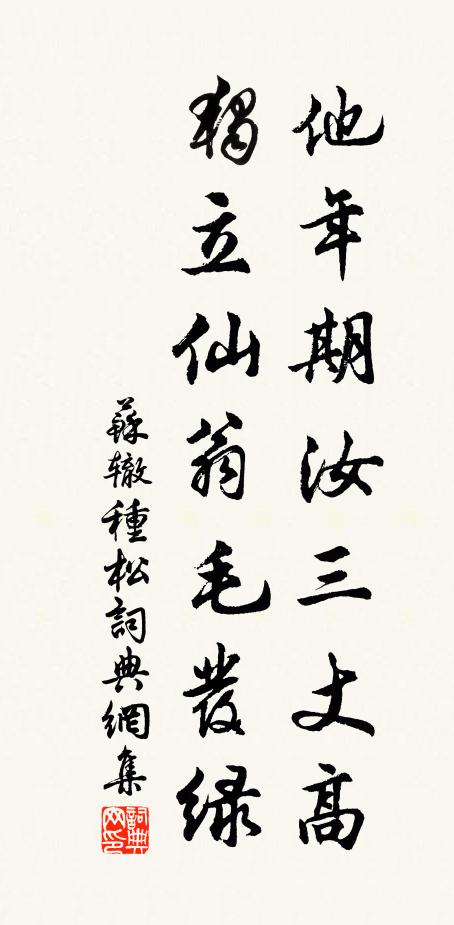 他年期汝三丈高
獨立仙翁毛發緑
蘇辙種松詞典網集
詞典网印